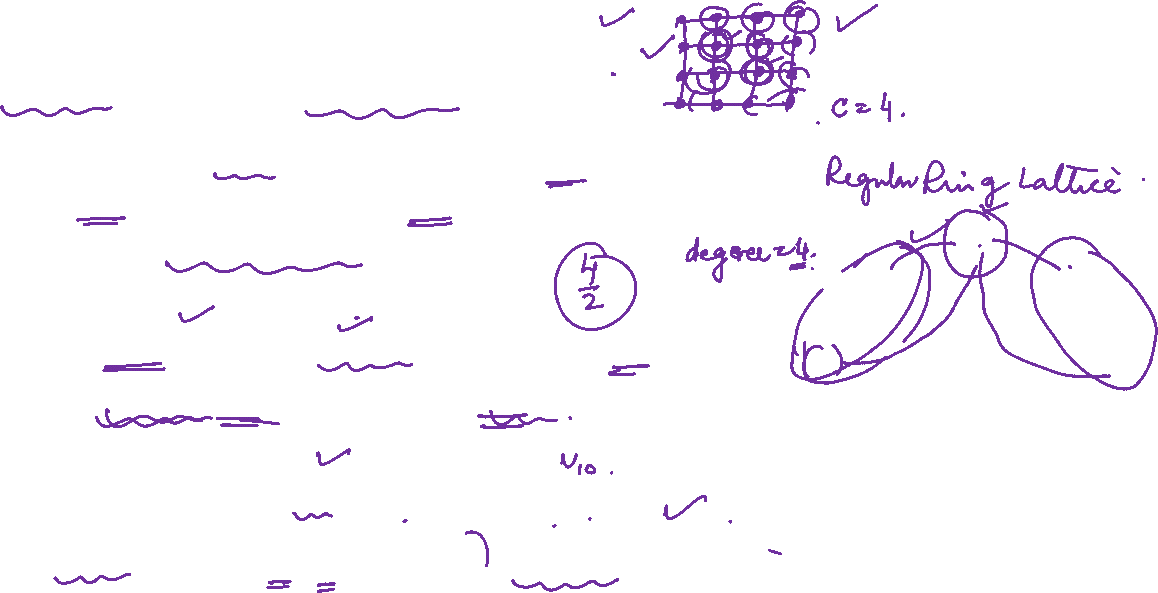 C = 4.
Regular Ring Lattice.
degree = 4.
4
2
V10.